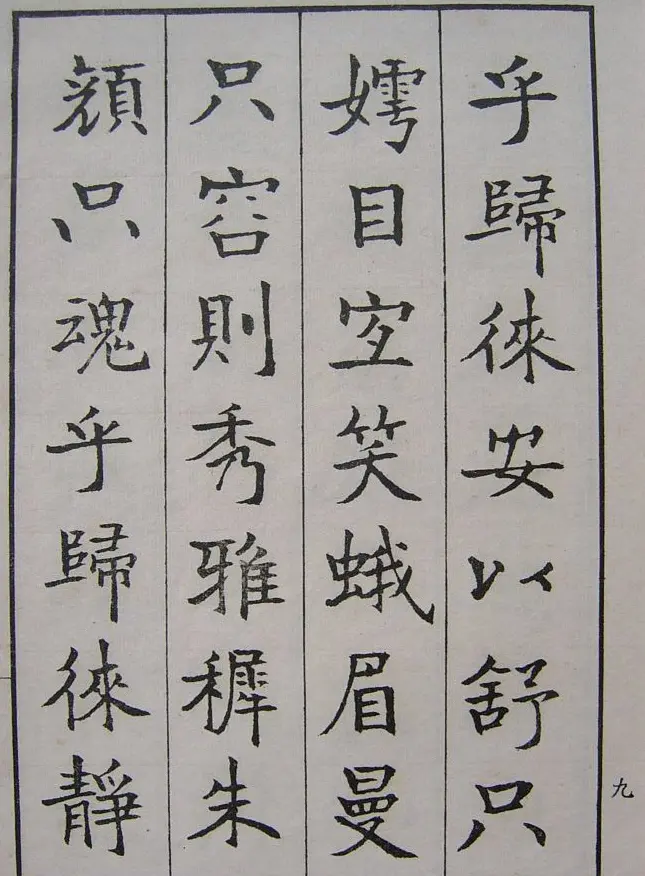 乎歸徠安以舒只
嫮目宐笑蛾眉曼
只容則秀雅穉朱
顔只魂乎歸徠靜
九